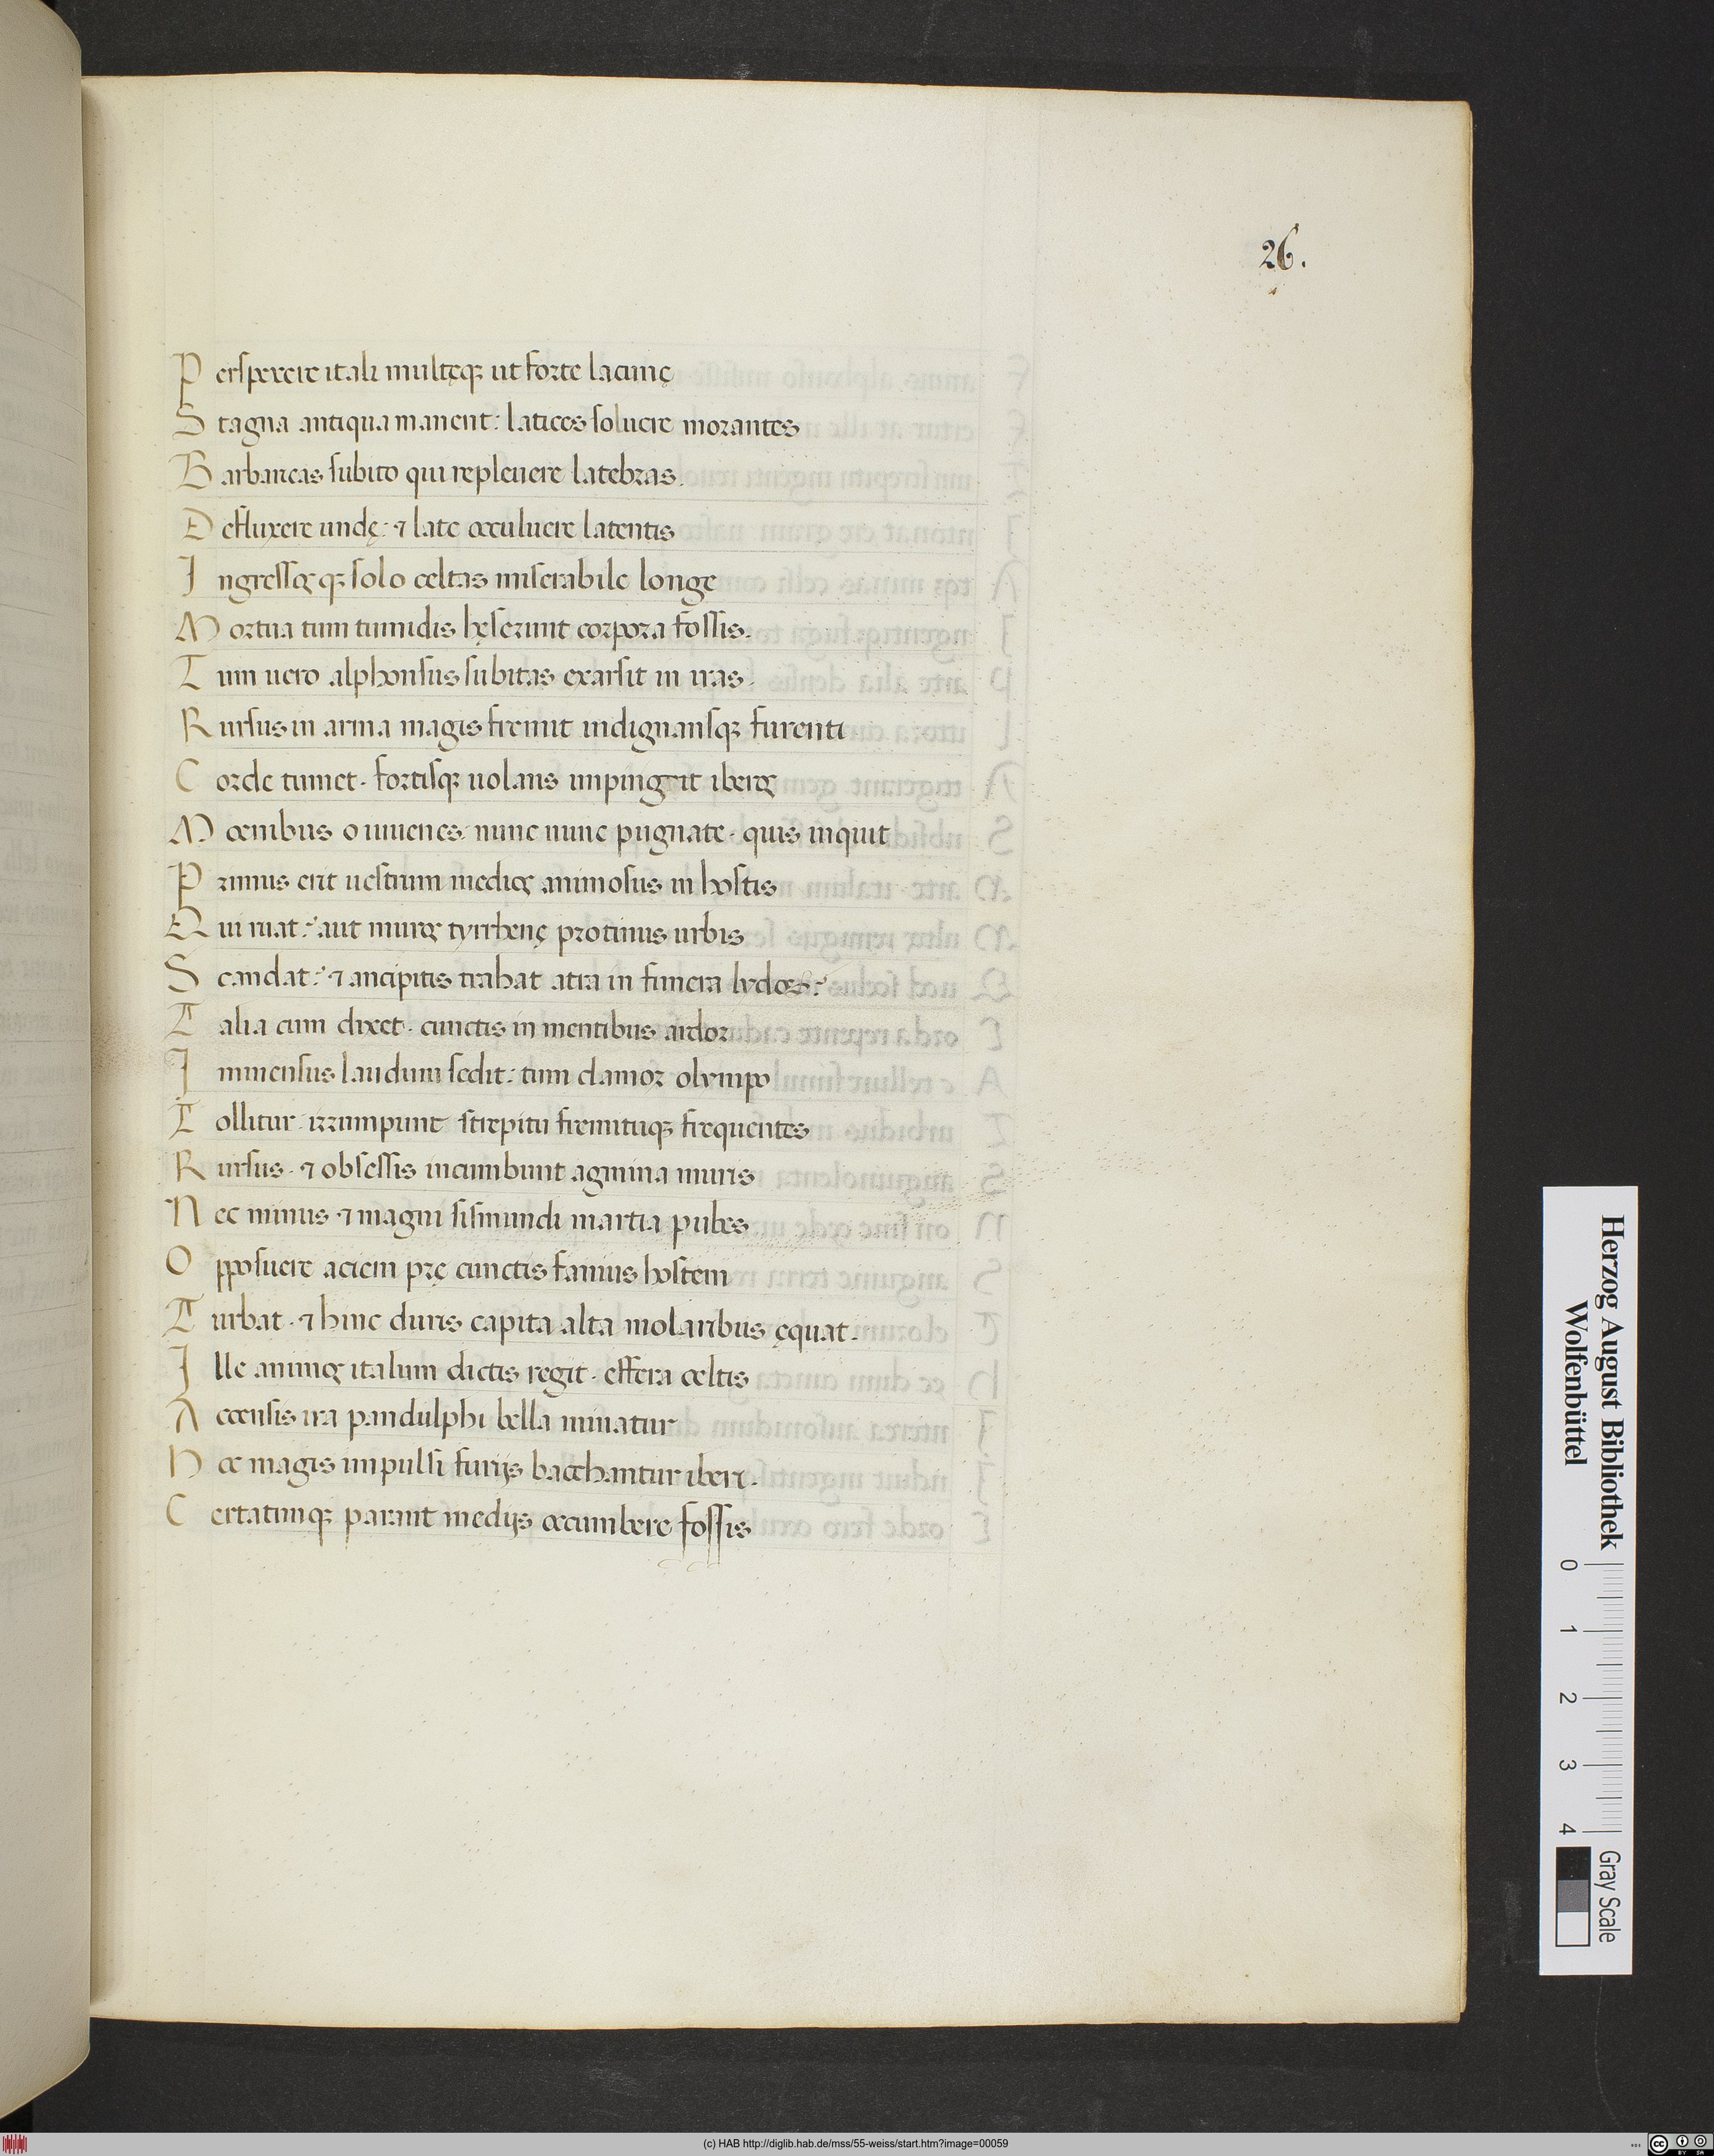 26.
Perspexere itali multęq; ut forte lacunę
Stagna antiqua manent: latices soluere morantes
Barbaricas subito qui repleuere latebras.
Defluxere undę: ⁊ late oculuere latentis
Ingressosq; solo celtas miserabile longe
Mortua tum tumidis hęserunt corpora fossis.
Tum uero alphonsus subitas exarsit in iras.
Rursus in arma magis fremit indignansq; furenti
Corde tumet. fortisq; uolans impingerit iberos
Moenibus o iuuenes. nunc nunc pugnate. quis inquit
Primus erit uestrum medios animosus in hostis
Qui ruat:́ aut muros tyrrhenę protinus urbis
Scandat:́ ⁊ ancipitis trahat atra in funera lydos:́
Talia cum dixet. cunctis in mentibus ardor
Immensus laudum sedit: tum clamor olympo
Tollitur. irrumpunt strepitu fremituq; frequentes
Rursus. ⁊ obsessis incumbunt agmina muris
Nec minus ⁊ magni sismundi martia pubes
Opposuere aciem prę cunctis fanius hostem
Turbat. ⁊ hinc duris capita alta molaribus ęquat.
Ille animos italum dictis regit. effera celtis
Accensis ira pandulphi bella minatur
Hoc magis impulsi furijs bacchantur iberi.
Certatimq; parant medijs occumbere fossis
Herzog August Bibliothek
Wolfenbüttel
0 1 2 3 4
Gray Scale
(c) HAB http://diglib.hab.de/mss/55-weiss/start.htm?image=00059